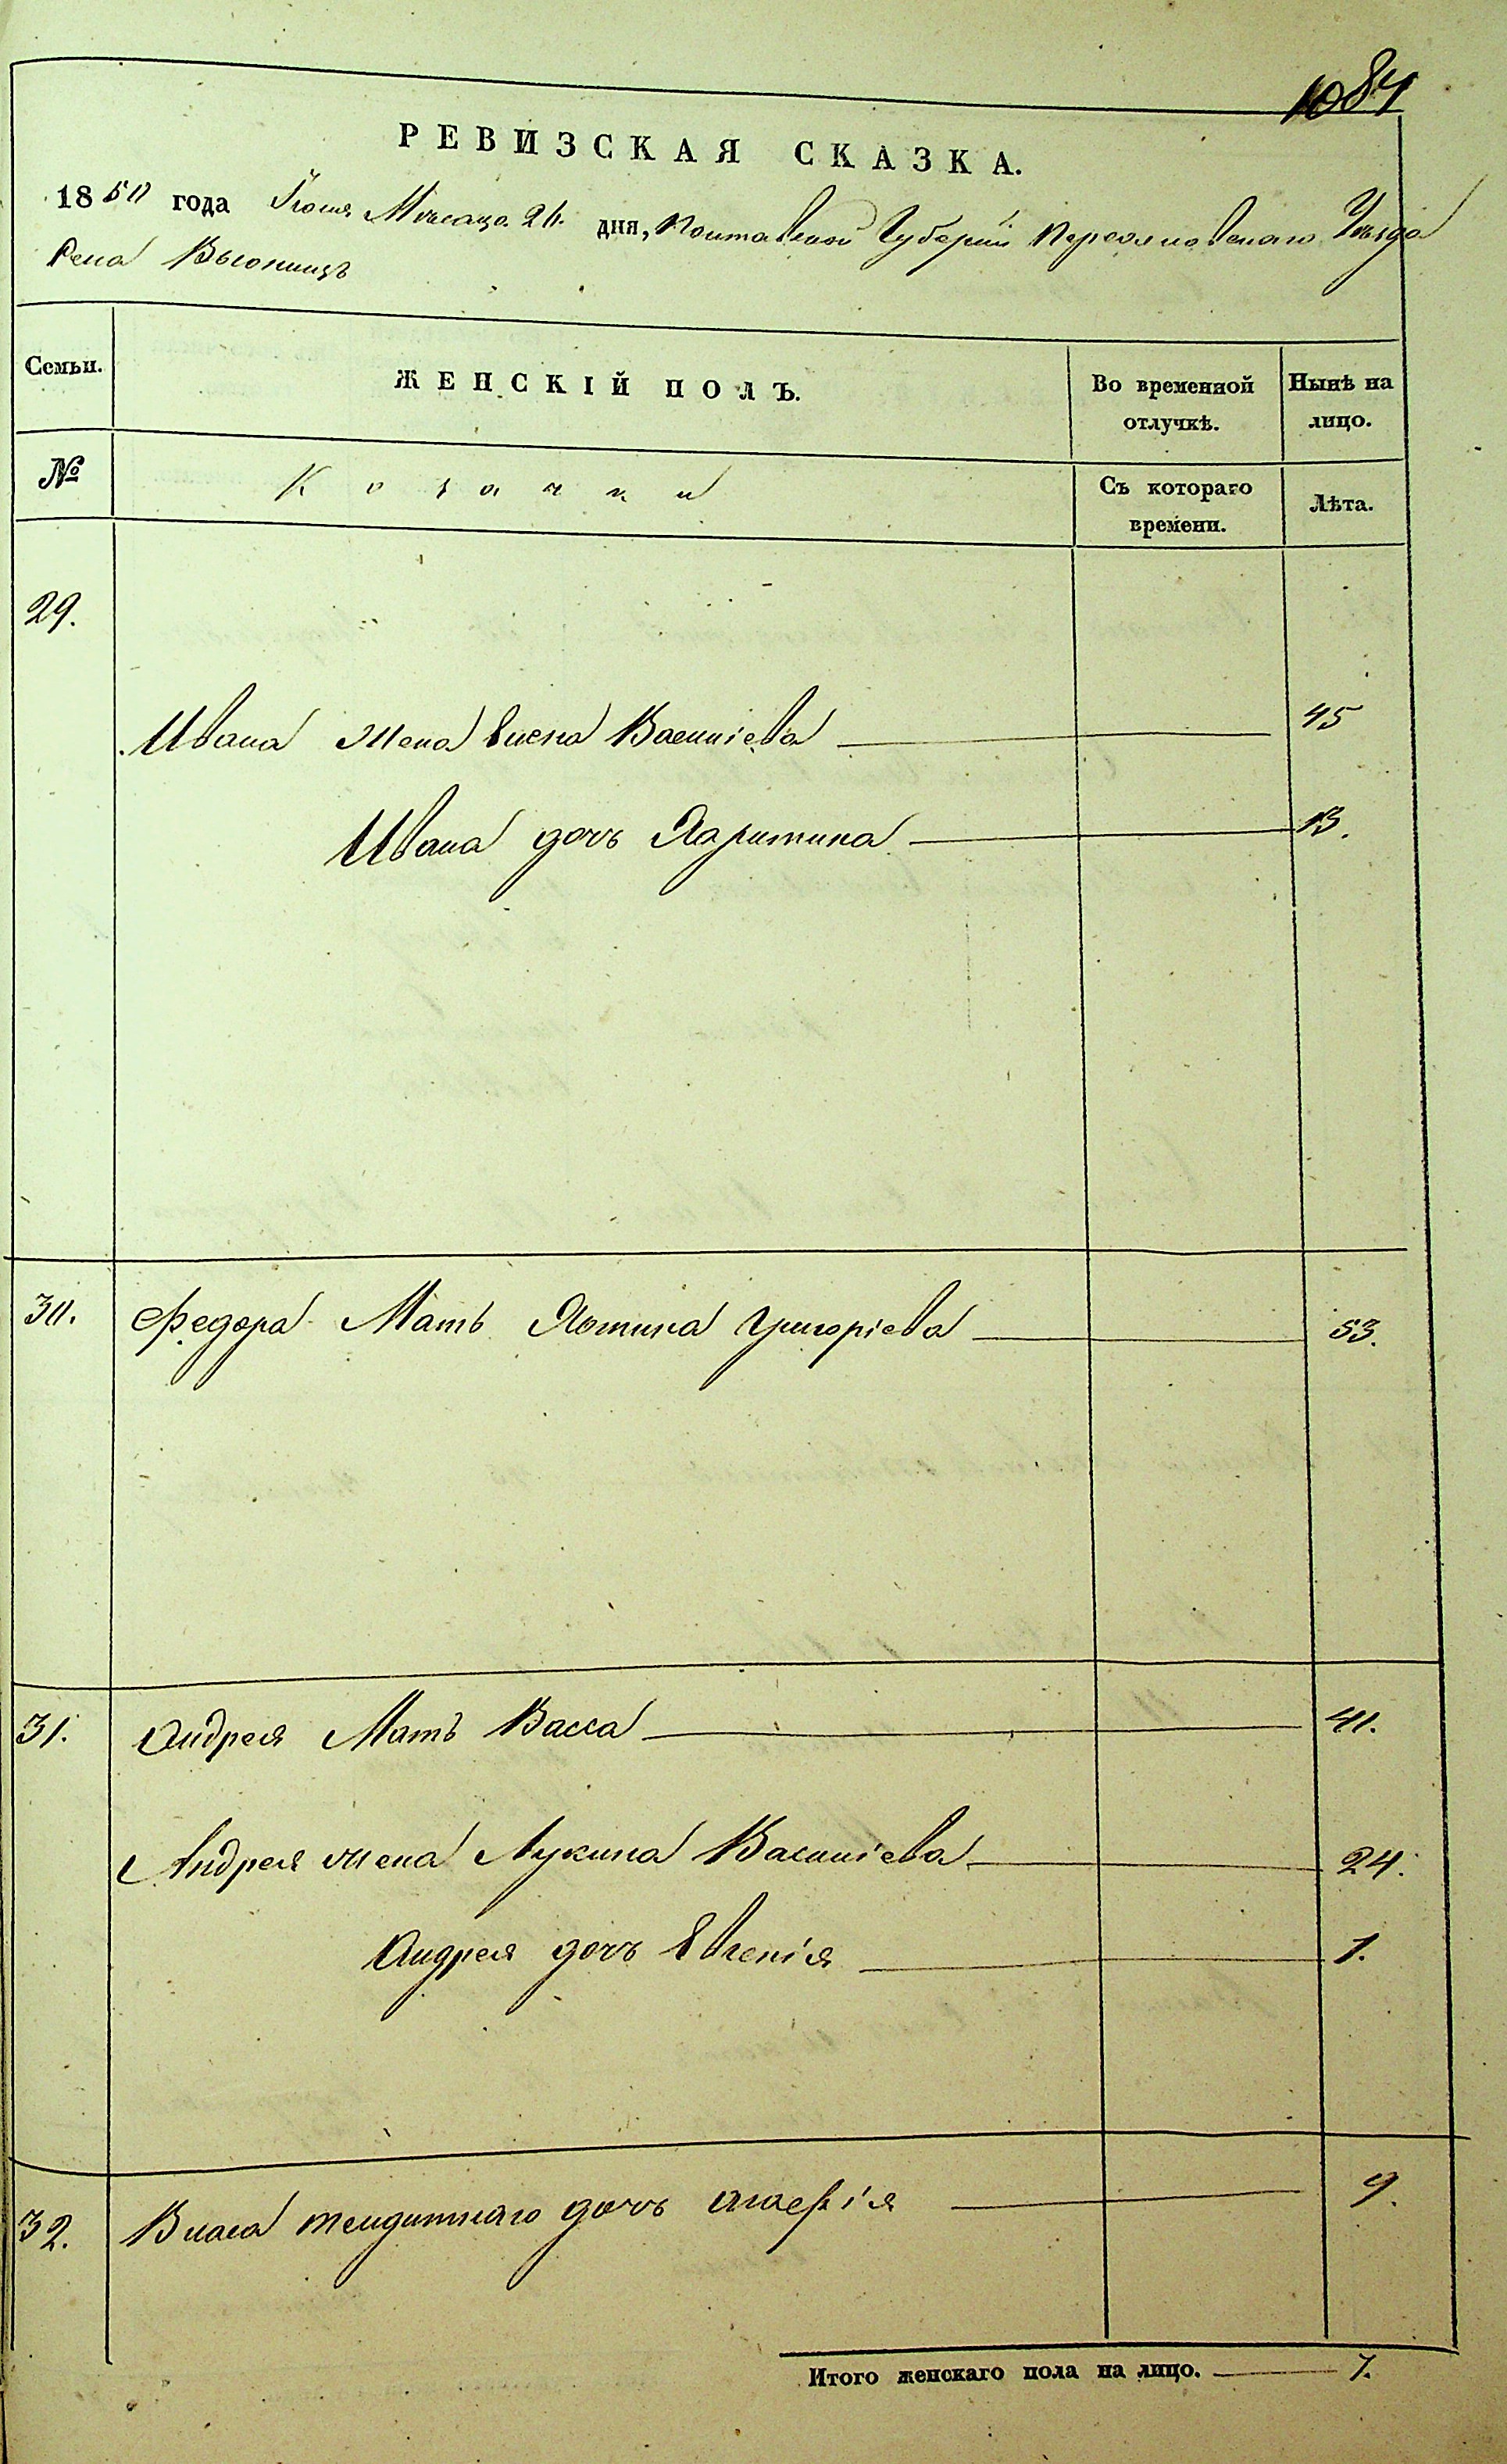 1084
РЕВИЗСКАЯ СКАЗКА.
1850 года Іюня Мѣсяца 26. дня, Полтавской Губерніи Переяславскаго Уѣзда
Села
Семьи. ЖЕНСКІЙ ПОЛЪ. Во временной отлучкѣ. Нынѣ на лицо.
№ Козачки Съ котораго времени. Лѣта.
29.
Ивана жена Елена Василіева 45
Ивана дочь Харитина 13.
30. Федора Мать Яотина Григоріева 53.
31. Андрея Мать Васса 40.
Андрея жена Лукина Василіева 24.
Андрея дочь Евгенія 1.
32. Власа дочь Агафія 9.
Итого женскаго пола на лицо. 7.